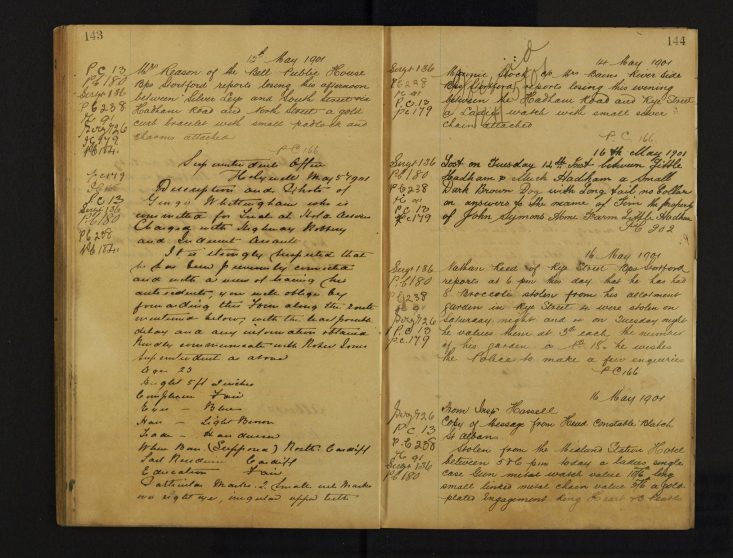 143
13th May 1901
P C 13
P C 180
Sergt 136
P C 238
P C 184
Mrs Reason of the Bell Public House
Bps Stortford reports losing this afternoon
between Silver Leys and South Street via
Hadham Road and North Street a gold
curb bracelet with small padlock and
charms attached
P C 166
Superintendents Office
Holywell May 5th 1901
P C 179
P C 13
Sergt 136
P C 180
P C 238
P C 184
Description and Photo of
George Whittingham who is
committed for trial at Assizes
Charged with Highway Robbery
and Indecent Assault
It is strongly suspected that
he has been previously convicted
and with a view of tracing his
antecedents, you will oblige by
forwarding this Form along the route
mentioned below, with the least possible
delay and any information obtained
Kindly communicate with Robert Jones
Superintendent as above
Age 23
Height 5ft inches
Complexion Fair
Eyes - Blue
Hair - Light Brown
Trade -
Where Born (Supposed) North Cardiff
Last Residence Cardiff
Education Fair
Particular Marks. 2 Small cut Marks
over right eye, irregular upper teeth
144
14 May 1901
Sergt 136
P C 238
P C 13
P C 179
Minnie Stock of Mrs Bains River Side
Bps Stortford reports losing this evening
between the Hadham Road and Rye Street
a Ladies watch with small silver
chain attached
P C 166
16th May 1901
Sergt 136
P C 180
P C 238
P C 13
P C 179
Lost on Tuesday 14th Inst between Little
Hadham & Much Hadham a Small
Dark Brown Dog with Long tail no Collar
on answers to the name of Tim the property
of John Symons Home Farm Little Hadham
P C 202
16 May 1901
Sergt 136
P C 180
P C 238
P C 13
P C 179
Nathan Reed of Rye Street Bps Stortford
reports at 6 pm this day that he has had
8 Broccoli stolen from his allotment
garden in Rye Street 4 were stolen on
Saturday night and 4 on Tuesday night
he values them at 3d each the number
of his garden is No 18. he wishes
the Police to make a few enquiries
P C 166
16 May 1901
P C 13
P C 238
Sergt 136
P C 180
From Insp Hassell
Copy of Message from Head Constable Blatch
St Albans
Stolen from the Midland Station Hotel
between 5 & 6 pm today a ladies single
case Gun metal watch value 10/6 long
small linked metal chain value 3/6 a gold
plated Engagement Ring Heart